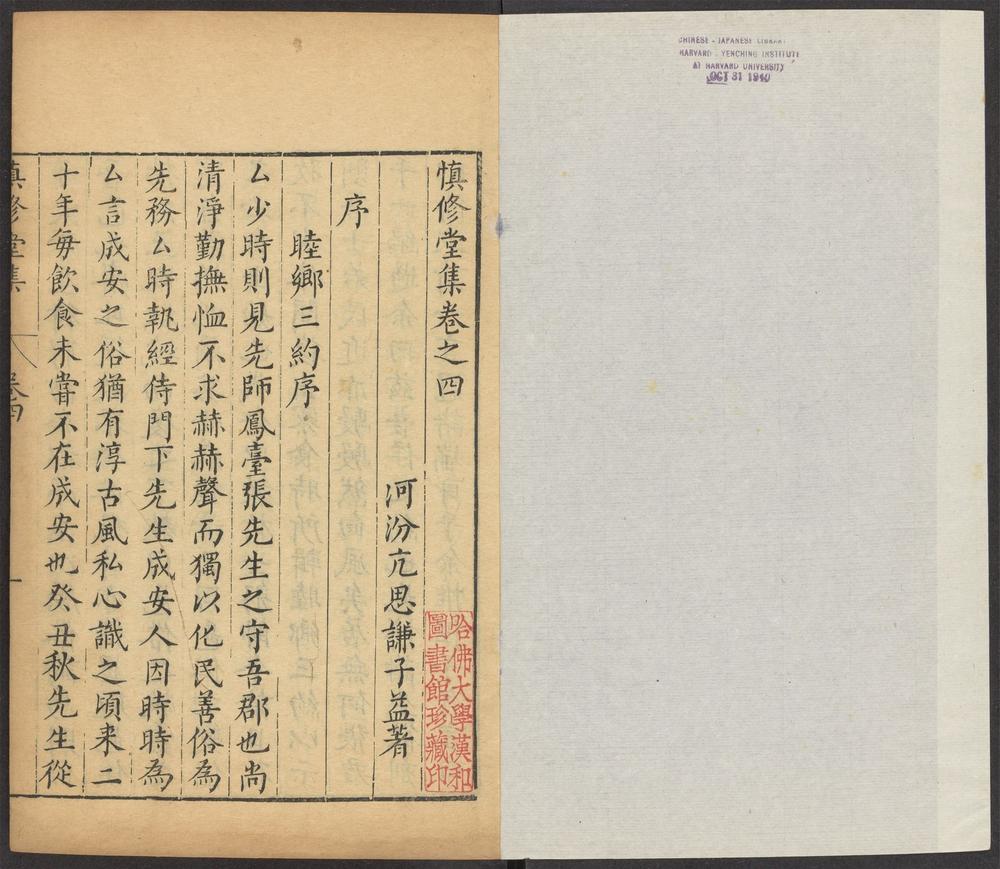 CHINESE - JAPANESE LIBRARY
HARVARD - YENCHING INSTITUTE
AT HARVARD UNIVERSITY
OCT 31 1940
慎修堂集卷之四
河汾亢思謙子益著
序
睦鄉三約序
厶少時則見先師鳳臺張先生之守吾郡也尚
清淨勤撫恤不求赫赫聲而獨以化民善俗為
先務厶時執經侍門下先生成安人因時時為
厶言成安之俗猶有淳古風私心識之頃来二
十年每飲食未甞不在成安也癸丑秋先生從
慎修堂集
卷四
一
哈佛大學漢和
圖書館珍藏印